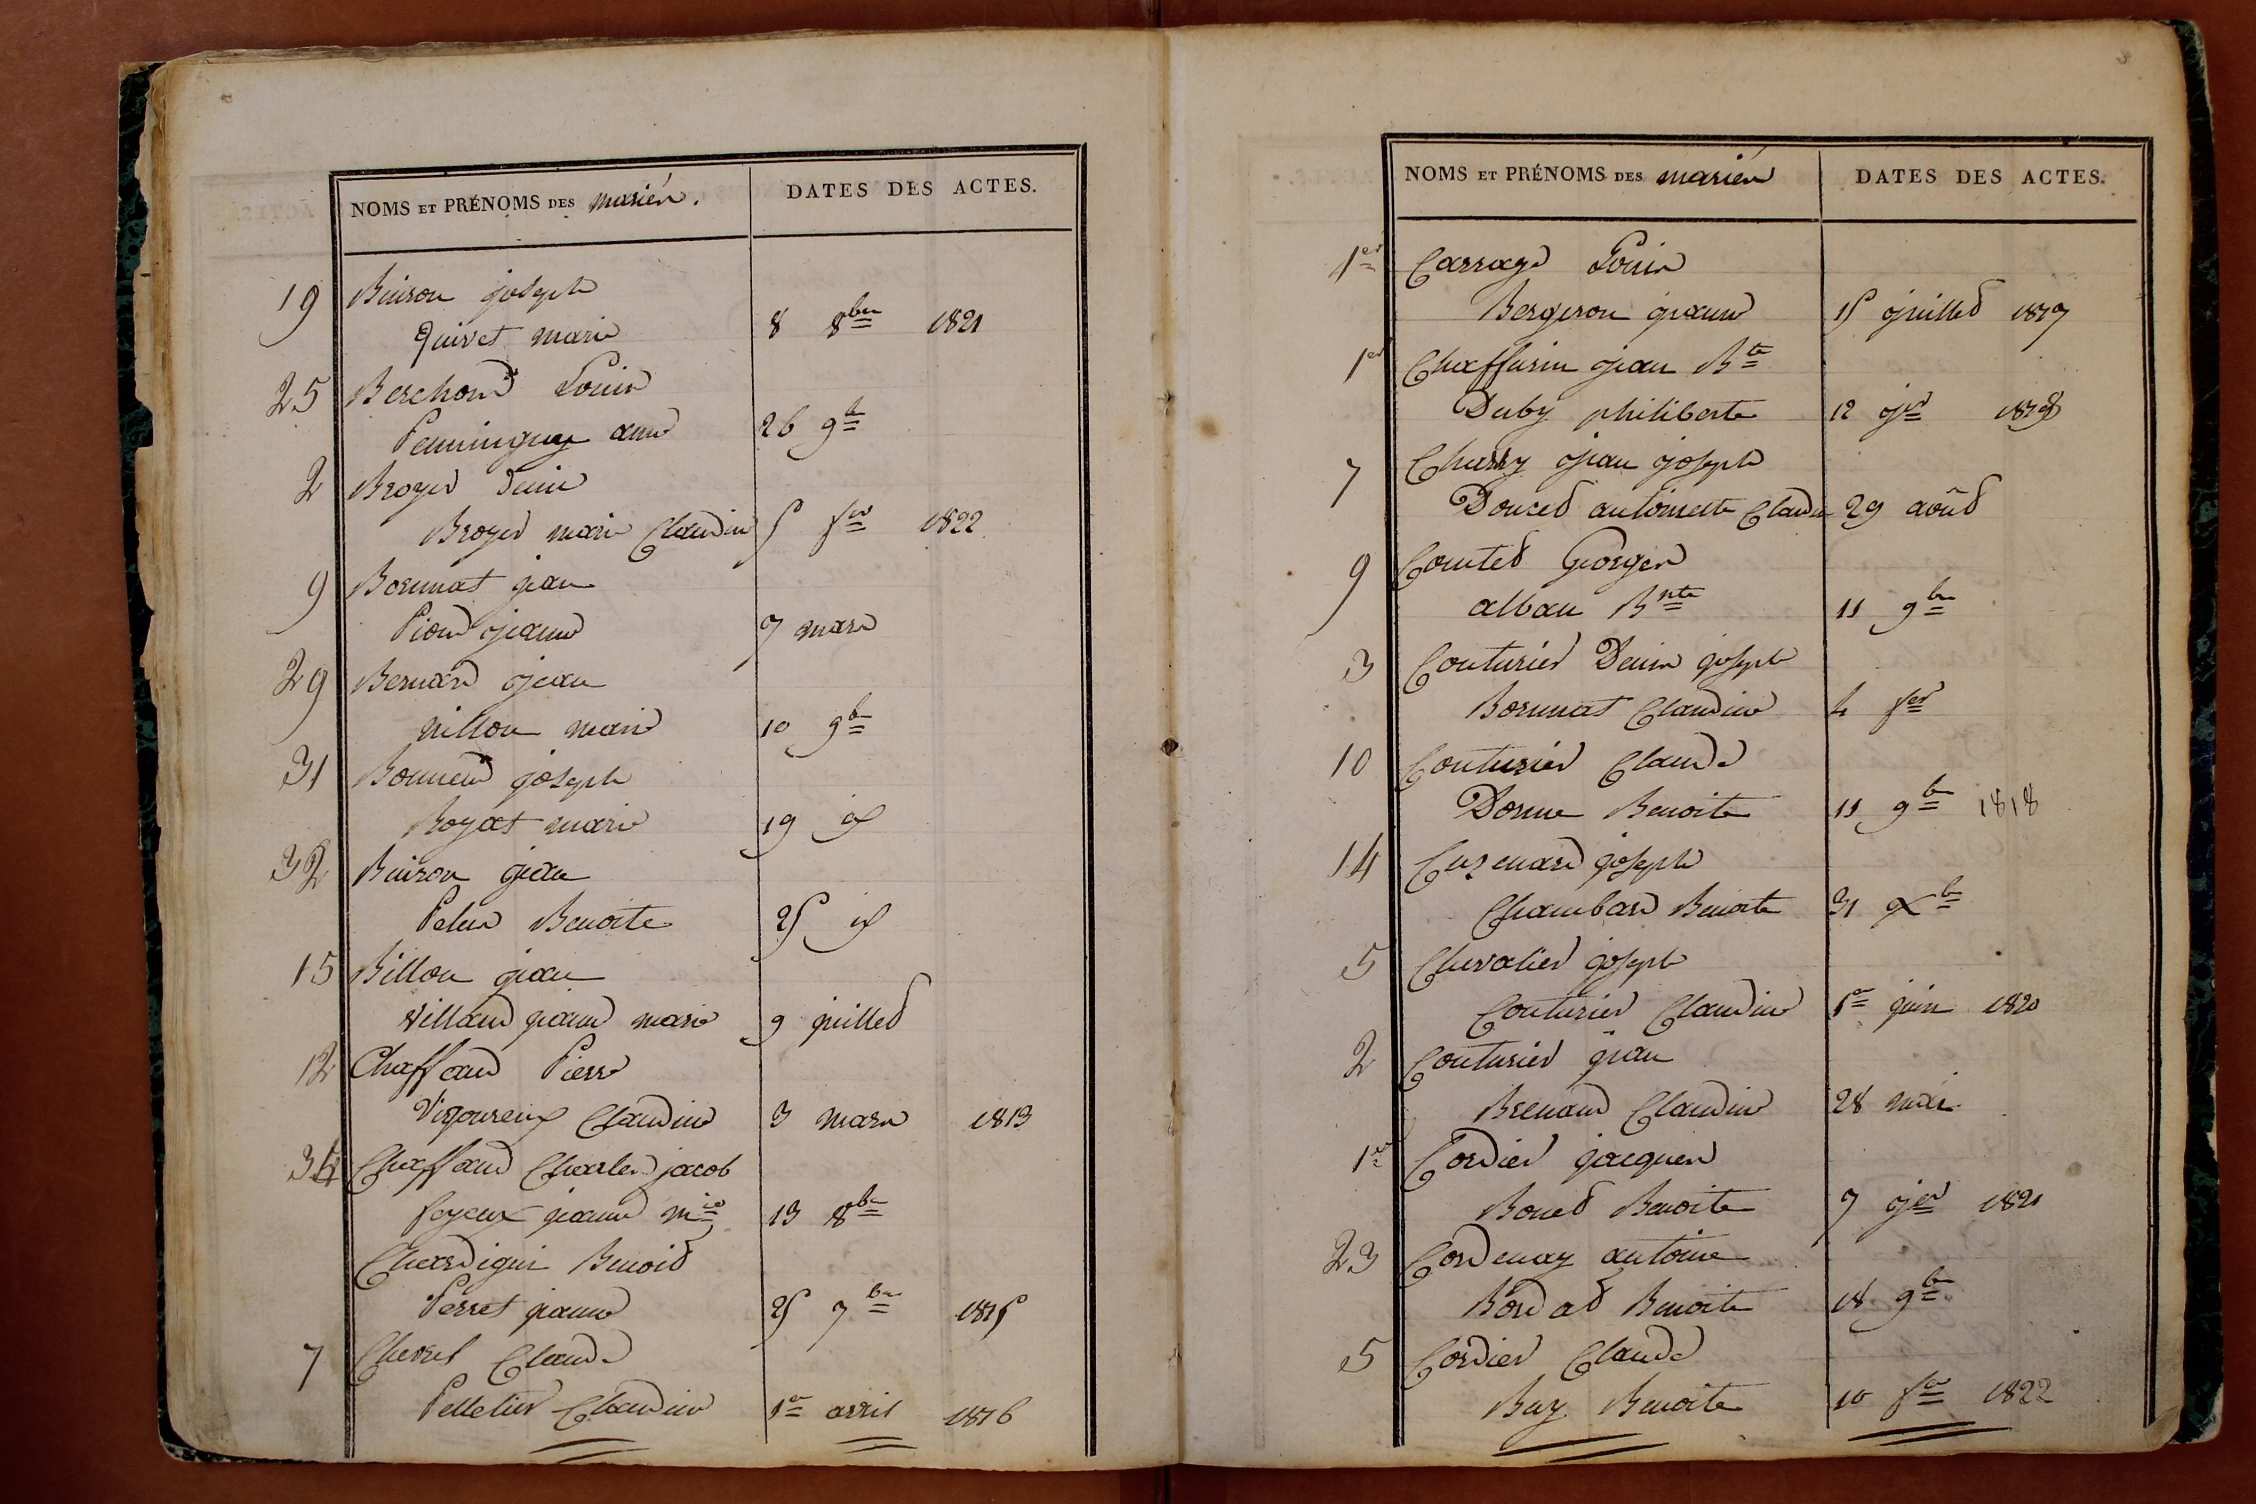 NOMS ET PRÉNOMS DES mariés. DATES DES ACTES.
19 Buiron joseph
Quivet marie 8 8bre 1821
25 Berchoud Louis
anne 26 9b
2 Broyer Denis
Broyer marie Claudine 5 fer 1822
9 Bornnat jean
Piond jeanne 7 mars
29 Bernard jean
nillon marie 10 9b
31 Bonnend joseph
Royat marie 19
32 Buiron jean
Pelus Benoite 25
15 Billon jean
villand jeanne marie 9 juillet
12 Chaffaud Pierre
Vigoureux Claudine 3 mars 1813
34 Chaffaud Charles jacob
foyeux jeanne mie 13 8bre
Chardigni Benoid
Perret jeanne 25 7bre 1815
7 Claude
Pelletier Claudine 1er avril 1816
NOMS ET PRÉNOMS DES mariés DATES DES ACTES.
1er Carrage Louis
Bergeron jeanne 15 juillet 1817
1er Chaffurin jean Bte
Duby philiberte 12 jer 1818
7 jean joseph
Doucet antoinette Claudine 29 août
9 Comtet Georges
alban Bnte 11 9bre
3 Couturier Denis joseph
Bornnat Claudine 4 fer
10 Couturier Claude
Dorme Benoite 11 9b 1818
14 Cuzenard joseph
Chambard Benoite 31 Xb
5 Chevalier joseph
Couturier Claudine 1er juin 1820
2 Couturier jean
Brenaud Claudine 28 mai
1er Cordier jacques
Bouet Benoite 7 jer 1821
23 Cordenay antoine
Bordat Benoite 18 9bre
5 Cordier Claude
Buy Benoite 10 fer 1822